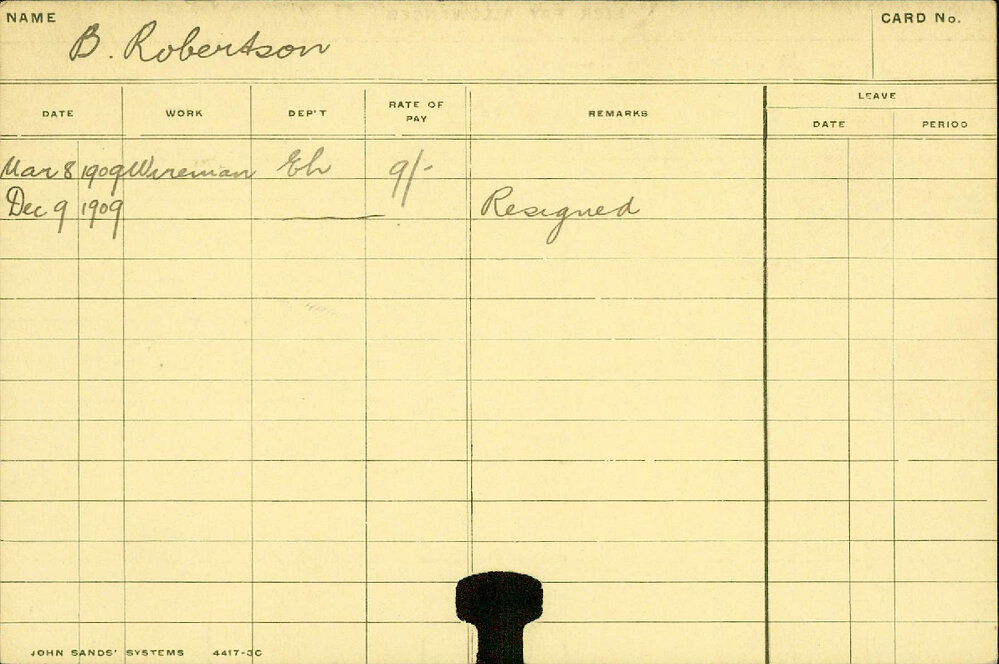 NAME B. Robertson CARD No.
DATE WORK DEP'T RATE OF PAY REMARKS LEAVE
DATE PERIOD
Mar 8 1909 Wireman Eh 9/-
Dec 9 1909 Resigned
JOHN SANDS' SYSTEMS 4417-3C